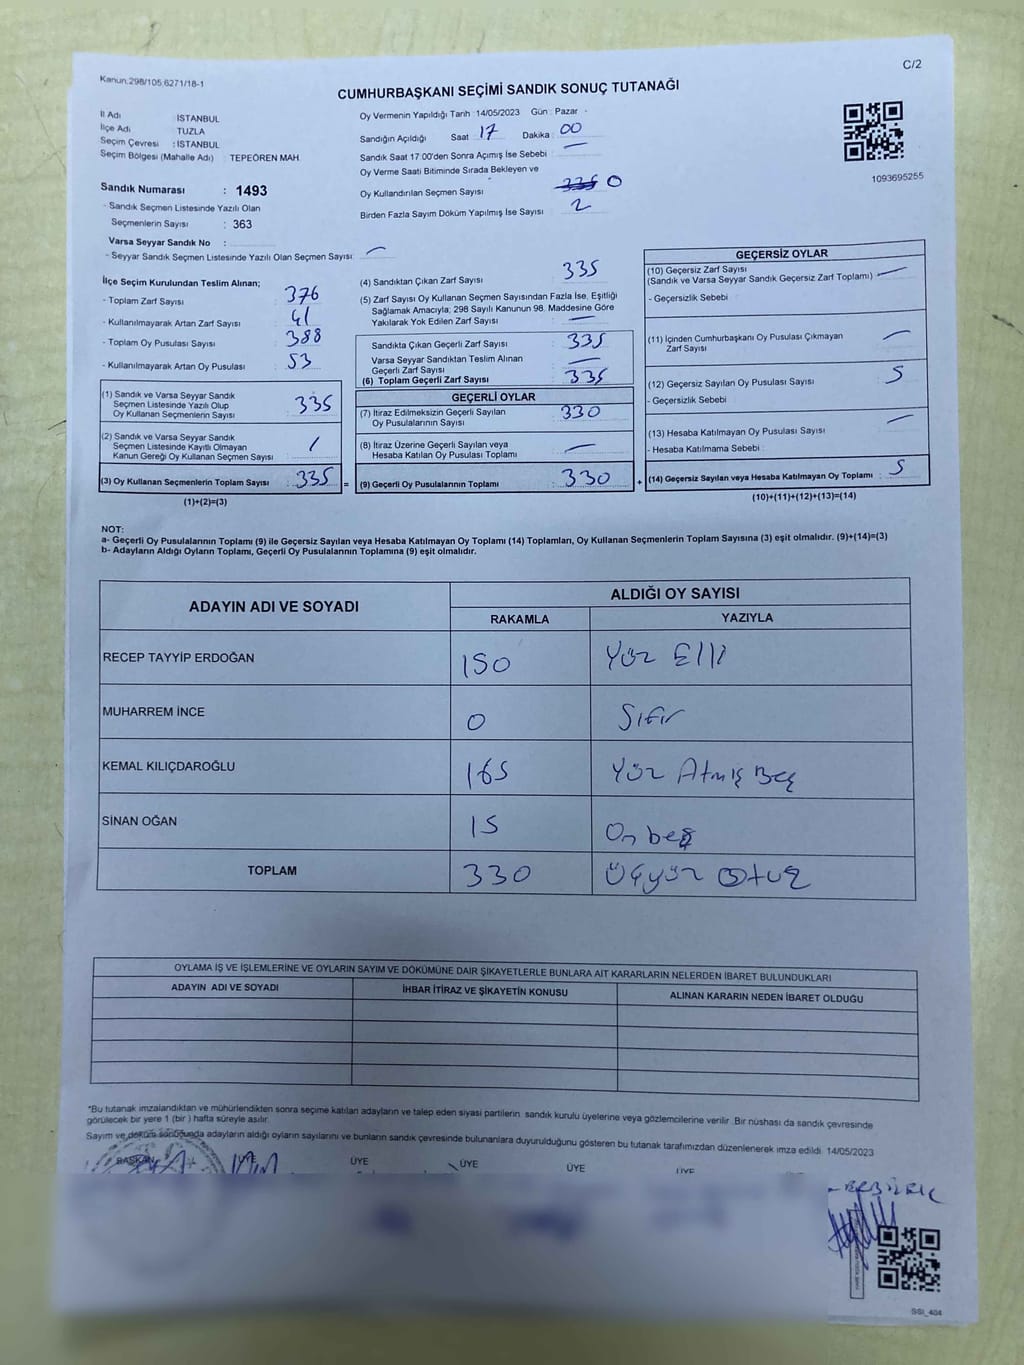 Kanun:298/105,6271/18-1
C/2
CUMHURBAŞKANI SEÇİMİ SANDIK SONUÇ TUTANAĞI
İl Adı : İSTANBUL
İlçe Adı : TUZLA
Seçim Çevresi : İSTANBUL
Seçim Bölgesi (Mahalle Adı) : TEPEÖREN MAH.
Sandık Numarası : 1493
- Sandık Seçmen Listesinde Yazılı Olan
Seçmenlerin Sayısı : 363
Varsa Seyyar Sandık No :
- Seyyar Sandık Seçmen Listesinde Yazılı Olan Seçmen Sayısı: —
Oy Vermenin Yapıldığı Tarih :14/05/2023 Gün : Pazar
Sandığın Açıldığı Saat 17 Dakika : 00
Sandık Saat 17:00'den Sonra Açılmış İse Sebebi : —
Oy Verme Saati Bitiminde Sırada Bekleyen ve
Oy Kullandırılan Seçmen Sayısı : 335 0
Birden Fazla Sayım Döküm Yapılmış İse Sayısı : 2
1093695255
İlçe Seçim Kurulundan Teslim Alınan;
- Toplam Zarf Sayısı : 376
- Kullanılmayarak Artan Zarf Sayısı : 41
- Toplam Oy Pusulası Sayısı : 388
- Kullanılmayarak Artan Oy Pusulası : 53
(1) Sandık ve Varsa Seyyar Sandık
Seçmen Listesinde Yazılı Olup
Oy Kullanan Seçmenlerin Sayısı : 335
(2) Sandık ve Varsa Seyyar Sandık
Seçmen Listesinde Kayıtlı Olmayan
Kanun Gereği Oy Kullanan Seçmen Sayısı : /
(3) Oy Kullanan Seçmenlerin Toplam Sayısı : 335 =
(1)+(2)=(3)
(4) Sandıktan Çıkan Zarf Sayısı : 335
(5) Zarf Sayısı Oy Kullanan Seçmen Sayısından Fazla İse, Eşitliği
Sağlamak Amacıyla; 298 Sayılı Kanunun 98. Maddesine Göre
Yakılarak Yok Edilen Zarf Sayısı : —
Sandıkta Çıkan Geçerli Zarf Sayısı : 335
Varsa Seyyar Sandıktan Teslim Alınan
Geçerli Zarf Sayısı : —
(6) Toplam Geçerli Zarf Sayısı : 335
GEÇERLİ OYLAR
(7) İtiraz Edilmeksizin Geçerli Sayılan
Oy Pusulalarının Sayısı : 330
(8) İtiraz Üzerine Geçerli Sayılan veya
Hesaba Katılan Oy Pusulası Toplamı : —
(9) Geçerli Oy Pusulalarının Toplamı : 330 +
GEÇERSİZ OYLAR
(10) Geçersiz Zarf Sayısı : —
(Sandık ve Varsa Seyyar Sandık Geçersiz Zarf Toplamı)
- Geçersizlik Sebebi :
(11) İçinden Cumhurbaşkanı Oy Pusulası Çıkmayan
Zarf Sayısı : —
(12) Geçersiz Sayılan Oy Pusulası Sayısı : 5
- Geçersizlik Sebebi :
(13) Hesaba Katılmayan Oy Pusulası Sayısı : —
- Hesaba Katılmama Sebebi :
(14) Geçersiz Sayılan veya Hesaba Katılmayan Oy Toplamı : 5
(10)+(11)+(12)+(13)=(14)
NOT:
a- Geçerli Oy Pusulalarının Toplamı (9) ile Geçersiz Sayılan veya Hesaba Katılmayan Oy Toplamı (14) Toplamları, Oy Kullanan Seçmenlerin Toplam Sayısına (3) eşit olmalıdır. (9)+(14)=(3)
b- Adayların Aldığı Oyların Toplamı, Geçerli Oy Pusulalarının Toplamına (9) eşit olmalıdır.
ADAYIN ADI VE SOYADI
ALDIĞI OY SAYISI
RAKAMLA YAZIYLA
RECEP TAYYİP ERDOĞAN 150 Yüz Elli
MUHARREM İNCE 0 Sıfır
KEMAL KILIÇDAROĞLU 165 Yüz Atmış Beş
SİNAN OĞAN 15 On beş
TOPLAM 330 Üçyüz Otuz
OYLAMA İŞ VE İŞLEMLERİNE VE OYLARIN SAYIM VE DÖKÜMÜNE DAİR ŞİKAYETLERLE BUNLARA AİT KARARLARIN NELERDEN İBARET BULUNDUKLARI
ADAYIN ADI VE SOYADI İHBAR İTİRAZ VE ŞİKAYETİN KONUSU ALINAN KARARIN NEDEN İBARET OLDUĞU
*Bu tutanak imzalandıktan ve mühürlendikten sonra seçime katılan adayların ve talep eden siyasi partilerin sandık kurulu üyelerine veya gözlemcilerine verilir. Bir nüshası da sandık çevresinde
görülecek bir yere 1 (bir) hafta süreyle asılır.
Sayım ve döküm sonucunda adayların aldığı oyların sayılarını ve bunların sandık çevresinde bulunanlara duyurulduğunu gösteren bu tutanak tarafımızdan düzenlenerek imza edildi. 14/05/2023
BAŞKAN ÜYE ÜYE ÜYE ÜYE ÜYE
SSI_404